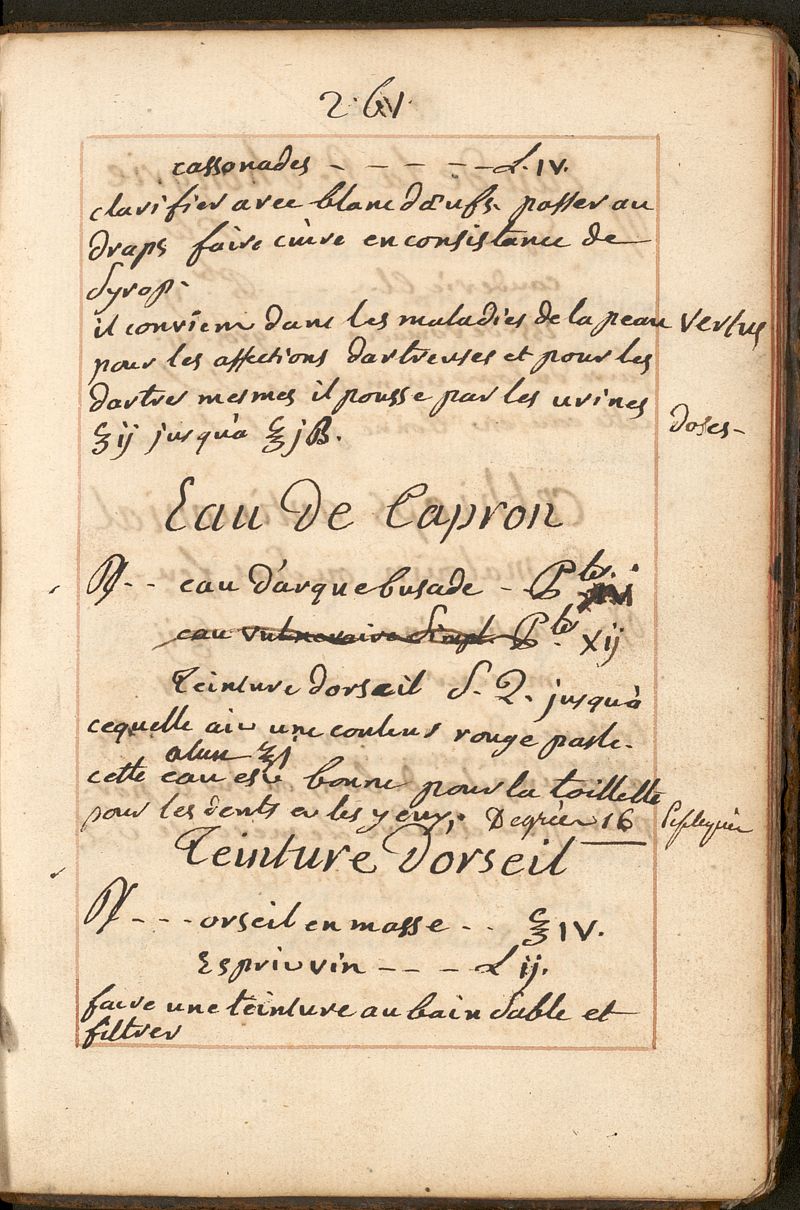 261
cassonades - - - - - ℔. IV.
clarifier avec blanc d'œufs. passer au
draps faire cuire en consistance de
Syrop.
il convient dans les maladies de la peau vertus
pour les affections dartreuses et pour les
dartres mesmes il pousse par les urines
℥ij jusqu'a ℥jß. doses-
Eau De Capron
℞. - - eau d'arquebusade - Pte.
eau vulneraire Simpl. Pte. Xij
Teinture dorseil S. Q. jusqu'a
cequelle ait une couleur rouge pasle.
alun ℥j
cette eau est bonne pour la toillette
pour les dents et les yeux. Degrier 16
Teinture D'orseil
℞ - - - orseil en masse - - ℥IV.
Esprit vin - - - ℔ ij.
faire une teinture au bain Sable et
filtrer